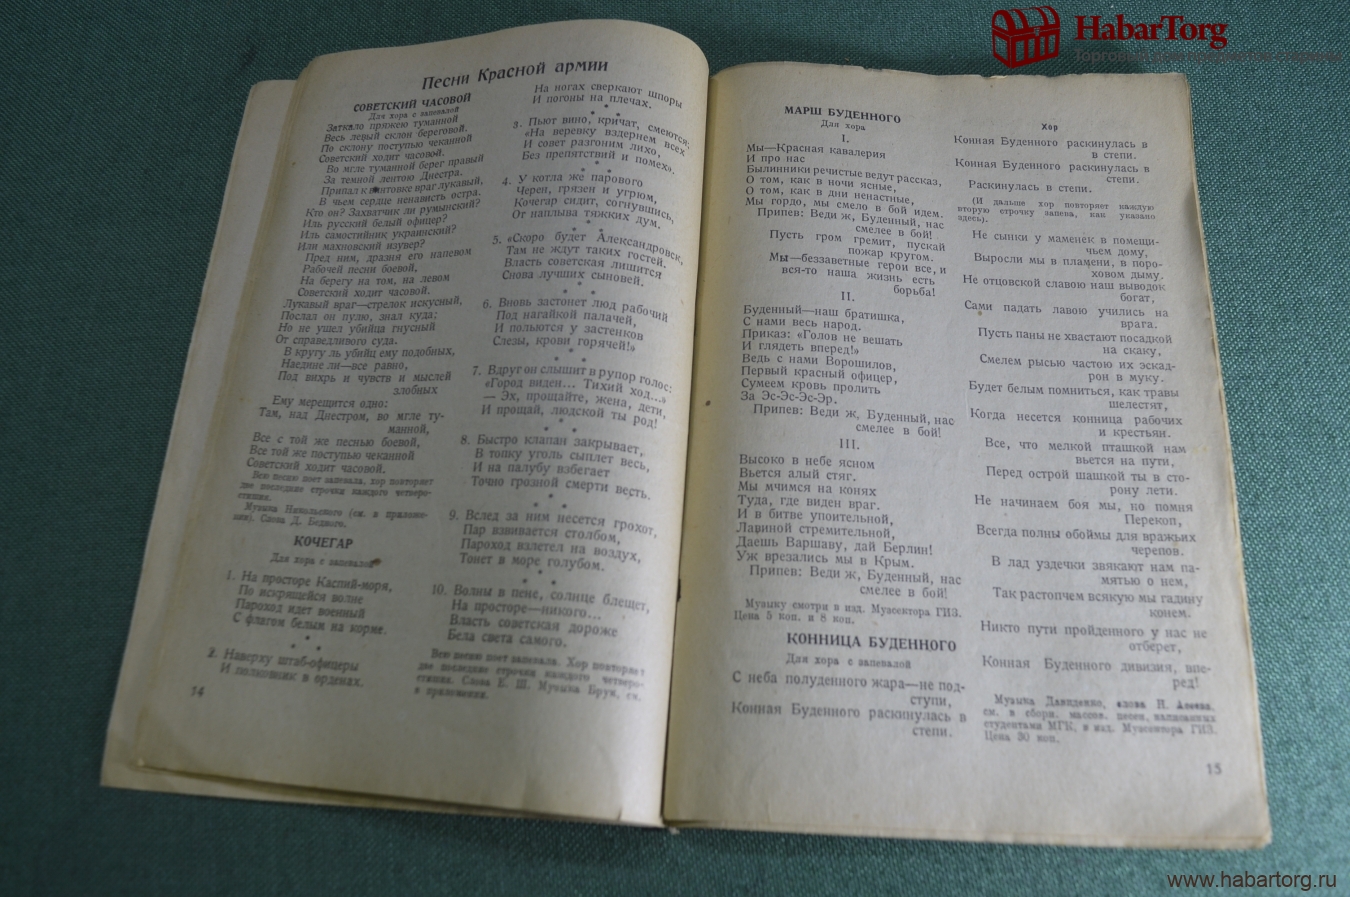 HabarTorg
Песни Красной армии
СОВЕТСКИЙ ЧАСОВОЙ
Для хора с запевалой
Заткало пряжею туманной
Весь левый склон береговой.
По склону поступью чеканной
Советский ходит часовой.
Во мгле туманной берег правый
За темной лентою Днестра.
Припал к винтовке враг лукавый,
В чьем сердце ненависть остра.
Кто он? Захватчик ли румынский?
Иль русский белый офицер?
Иль самостийник украинский?
Или махновский изувер?
Пред ним, дразня его напевом
Рабочей песни боевой,
На берегу на том, на левом
Советский ходит часовой.
Лукавый враг—стрелок искусный,
Послал он пулю, знал куда;
Но не ушел убийца гнусный
От справедливого суда.
В кругу ль убийц ему подобных,
Наедине ли—все равно,
Под вихрь и чувств и мыслей
злобных
Ему мерещится одно:
Там, над Днестром, во мгле ту-
манной,
Все с той же песнью боевой,
Все той же поступью чеканной
Советский ходит часовой.
Всю песню поет запевала, хор повторяет
две последние строчки каждого четверо-
стишия.
Музыка Никольского (см. в приложе-
нии). Слова Д. Бедного.
КОЧЕГАР
Для хора с запевалой
1. На просторе Каспий-моря,
По искрящейся волне
Пароход идет военный
С флагом белым на корме.
* *
2. Наверху штаб-офицеры
И полковник в орденах.
14
На ногах сверкают шпоры
И погоны на плечах.
* * *
3. Пьют вино, кричат, смеются:
«На веревку вздернем всех
И совет разгоним лихо,
Без препятствий и помех».
* * *
4. У котла же парового
Череп, грязен и угрюм,
Кочегар сидит, согнувшись,
От наплыва тяжких дум.
* * *
5. «Скоро будет Александровск,
Там не ждут таких гостей.
Власть советская лишится
Снова лучших сыновей.
* * *
6. Вновь застонет люд рабочий
Под нагайкой палачей,
И польются у застенков
Слезы, крови горячей!»
* * *
7. Вдруг он слышит в рупор голос:
«Город виден... Тихий ход...»
— Эх, прощайте, жена, дети,
И прощай, людской ты род!
* * *
8. Быстро клапан закрывает,
В топку уголь сыплет весь,
И на палубу взбегает
Точно грозной смерти весть.
* * *
9. Вслед за ним несется грохот,
Пар взвивается столбом,
Пароход взлетел на воздух,
Тонет в море голубом.
* * *
10. Волны в пене, солнце блещет,
На просторе—никого...
Власть советская дороже
Бела света самого.
Всю песню поет запевала. Хор повторяет
две последние строчки каждого четверо-
стишия. Слова Е. Ш. Музыка Брук, см.
в приложении.
МАРШ БУДЕННОГО
Для хора
I.
Мы—Красная кавалерия
И про нас
Былинники речистые ведут рассказ,
О том, как в ночи ясные,
О том, как в дни ненастные,
Мы гордо, мы смело в бой идем.
Припев: Веди ж, Буденный, нас
смелее в бой!
Пусть гром гремит, пускай
пожар кругом.
Мы—беззаветные герои все, и
вся-то наша жизнь есть
борьба!
II.
Буденный—наш братишка,
С нами весь народ.
Приказ: «Голов не вешать
И глядеть вперед!»
Ведь с нами Ворошилов,
Первый красный офицер,
Сумеем кровь пролить
За Эс-Эс-Эс-Эр.
Припев: Веди ж, Буденный, нас
смелее в бой!
III.
Высоко в небе ясном
Вьется алый стяг.
Мы мчимся на конях
Туда, где виден враг.
И в битве упоительной,
Лавиной стремительной,
Даешь Варшаву, дай Берлин!
Уж врезались мы в Крым.
Припев: Веди ж, Буденный, нас
смелее в бой!
Музыку смотри в изд. Музсектора ГИЗ.
Цена 5 коп. и 8 коп.
КОННИЦА БУДЕННОГО
Для хора с запевалой
С неба полуденного жара—не под-
ступи,
Конная Буденного раскинулась в
степи.
Хор
Конная Буденного раскинулась в
в степи.
Конная Буденного раскинулась в
степи.
Раскинулась в степи.
(И дальше хор повторяет каждую
вторую строчку запева, как указано
здесь).
Не сынки у маменек в помещи-
чьем дому,
Выросли мы в пламени, в поро-
ховом дыму.
Не отцовской славою наш выводок
богат,
Сами падать лавою учились на
врага.
Пусть паны не хвастают посадкой
на скаку,
Смелем рысью частою их эскад-
рон в муку.
Будет белым помниться, как травы
шелестят,
Когда несется конница рабочих
и крестьян.
Все, что мелкой пташкой нам
вьется на пути,
Перед острой шашкой ты в сто-
рону лети.
Не начинаем боя мы, но помня
Перекоп,
Всегда полны обоймы для вражьих
черепов.
В лад уздечки звякают нам па-
мятью о нем,
Так растопчем всякую мы гадину
конем.
Никто пути пройденного у нас не
отберет,
Конная Буденного дивизия, впе-
ред!
Музыка Давиденко, слова Н. Асеева,
см. в сборн. массов. песен, написанных
студентами МГК, в изд. Музсектора ГИЗ.
Цена 30 коп.
15
www.habartorg.ru